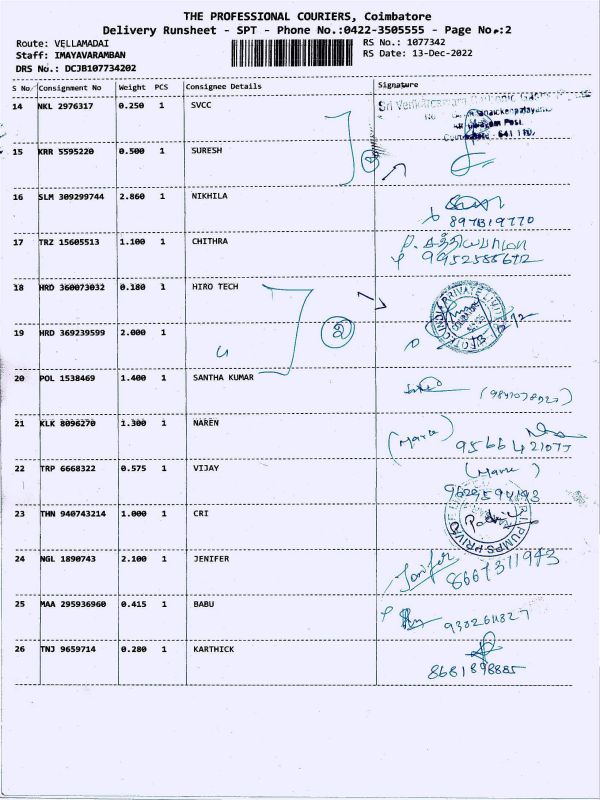 THE PROFESSIONAL COURIERS, Coimbatore
Delivery Runsheet - SPT - Phone No.:0422-3505555 - Page No.:2
Route: VELLAMADAI RS No.: 1077342
Staff: IMAYAVARAMBAN RS Date: 13-Dec-2022
DRS No.: DCJB107734202
S No Consignment No Weight PCS Consignee Details Signature
14 NKL 2976317 0.250 1 SVCC
Coimbatore - 641 110.
15 KRR 5595220 0.500 1 SURESH
2
16 SLM 309299744 2.860 1 NIKHILA
17 TRZ 15605513 1.100 1 CHITHRA
9952585672
18 HRD 360073032 0.180 1 HIRO TECH
PRIVATE LIMITED
19 HRD 369239599 2.000 1
2
20 POL 1538469 1.400 1 SANTHA KUMAR
21 KLK 8096270 1.300 1 NAREN
9566421077
22 TRP 6668322 0.575 1 VIJAY
9629594193
23 THN 940743214 1.000 1 CRI
PUMPS PRIVATE
24 NGL 1890743 2.100 1 JENIFER Jenifer
8667311943
25 MAA 295936960 0.415 1 BABU
9382611827
26 TNJ 9659714 0.280 1 KARTHICK
8681898885